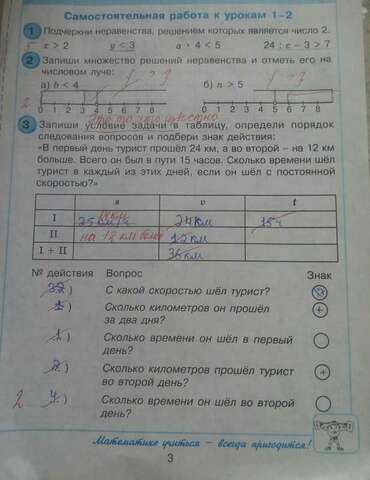 Самостоятельная работа к урокам 1–2
1 Подчеркни неравенства, решением которых является число 2.
x > 2 y < 3 a · 4 < 5 24 : c – 3 > 7
2 Запиши множество решений неравенства и отметь его на
числовом луче:
а) b < 4 б) n > 5
0 1 2 3 4 5 6 7 8 0 1 2 3 4 5 6 7 8
2 Это то что известно
3 Запиши условие задачи в таблицу, определи порядок
следования вопросов и подбери знак действия:
«В первый день турист прошёл 24 км, а во второй – на 12 км
больше. Всего он был в пути 15 часов. Сколько времени шёл
турист в каждый из этих дней, если он шёл с постоянной
скоростью?»
s v t
I 24км 15ч
II на 12 км более 12км
I + II 36км
№ действия Вопрос Знак
) С какой скоростью шёл турист?
1 ) Сколько километров он прошёл +
за два дня?
1 ) Сколько времени он шёл в первый
день?
) Сколько километров прошёл турист +
во второй день?
2 ) Сколько времени он шёл во второй
день?
Математике учиться – всегда пригодится!
3